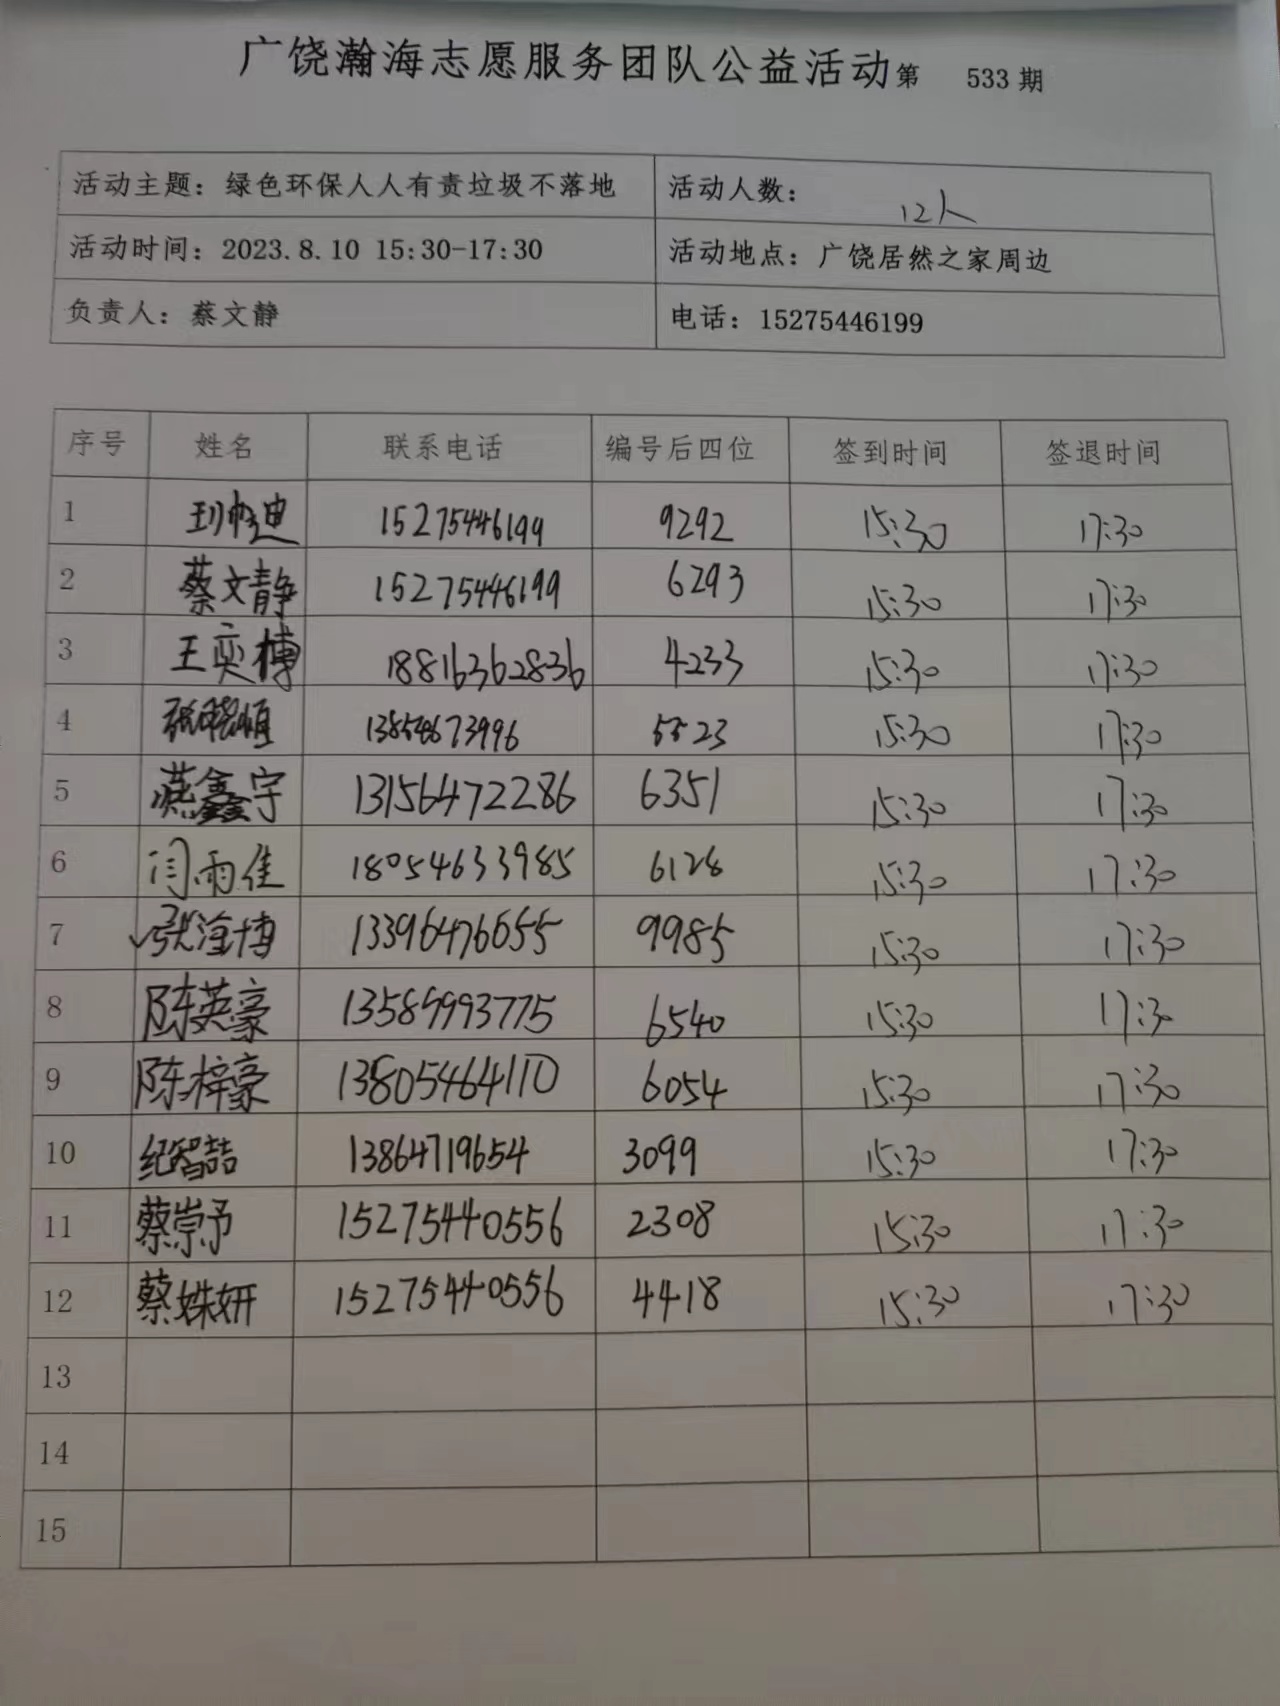 广饶瀚海志愿服务团队公益活动第 533 期
活动主题：绿色环保人人有责垃圾不落地 活动人数： 12人
活动时间：2023.8.10 15:30-17:30 活动地点：广饶居然之家周边
负责人：蔡文静 电话：15275446199
序号 姓名 联系电话 编号后四位 签到时间 签退时间
1 15275446199 9292 15:30 17:30
2 蔡文静 15275446199 6293 15:30 17:30
3 王奕博 18816362836 4233 15:30 17:30
4 13854673996 5523 15:30 17:30
5 燕鑫宇 13156472286 6351 15:30 17:30
6 闫雨佳 18054633985 6128 15:30 17:30
7 张淦博 13396476055 9985 15:30 17:30
8 陈英豪 13589993775 6540 15:30 17:30
9 陈梓豪 13805464110 6054 15:30 17:30
10 纪智喆 13864719654 3099 15:30 17:30
11 蔡崇予 15275440556 2308 15:30 17:30
12 蔡姝妍 15275440556 4418 15:30 17:30
13
14
15